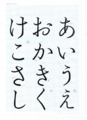 あいうえ
おかきく
けこさし